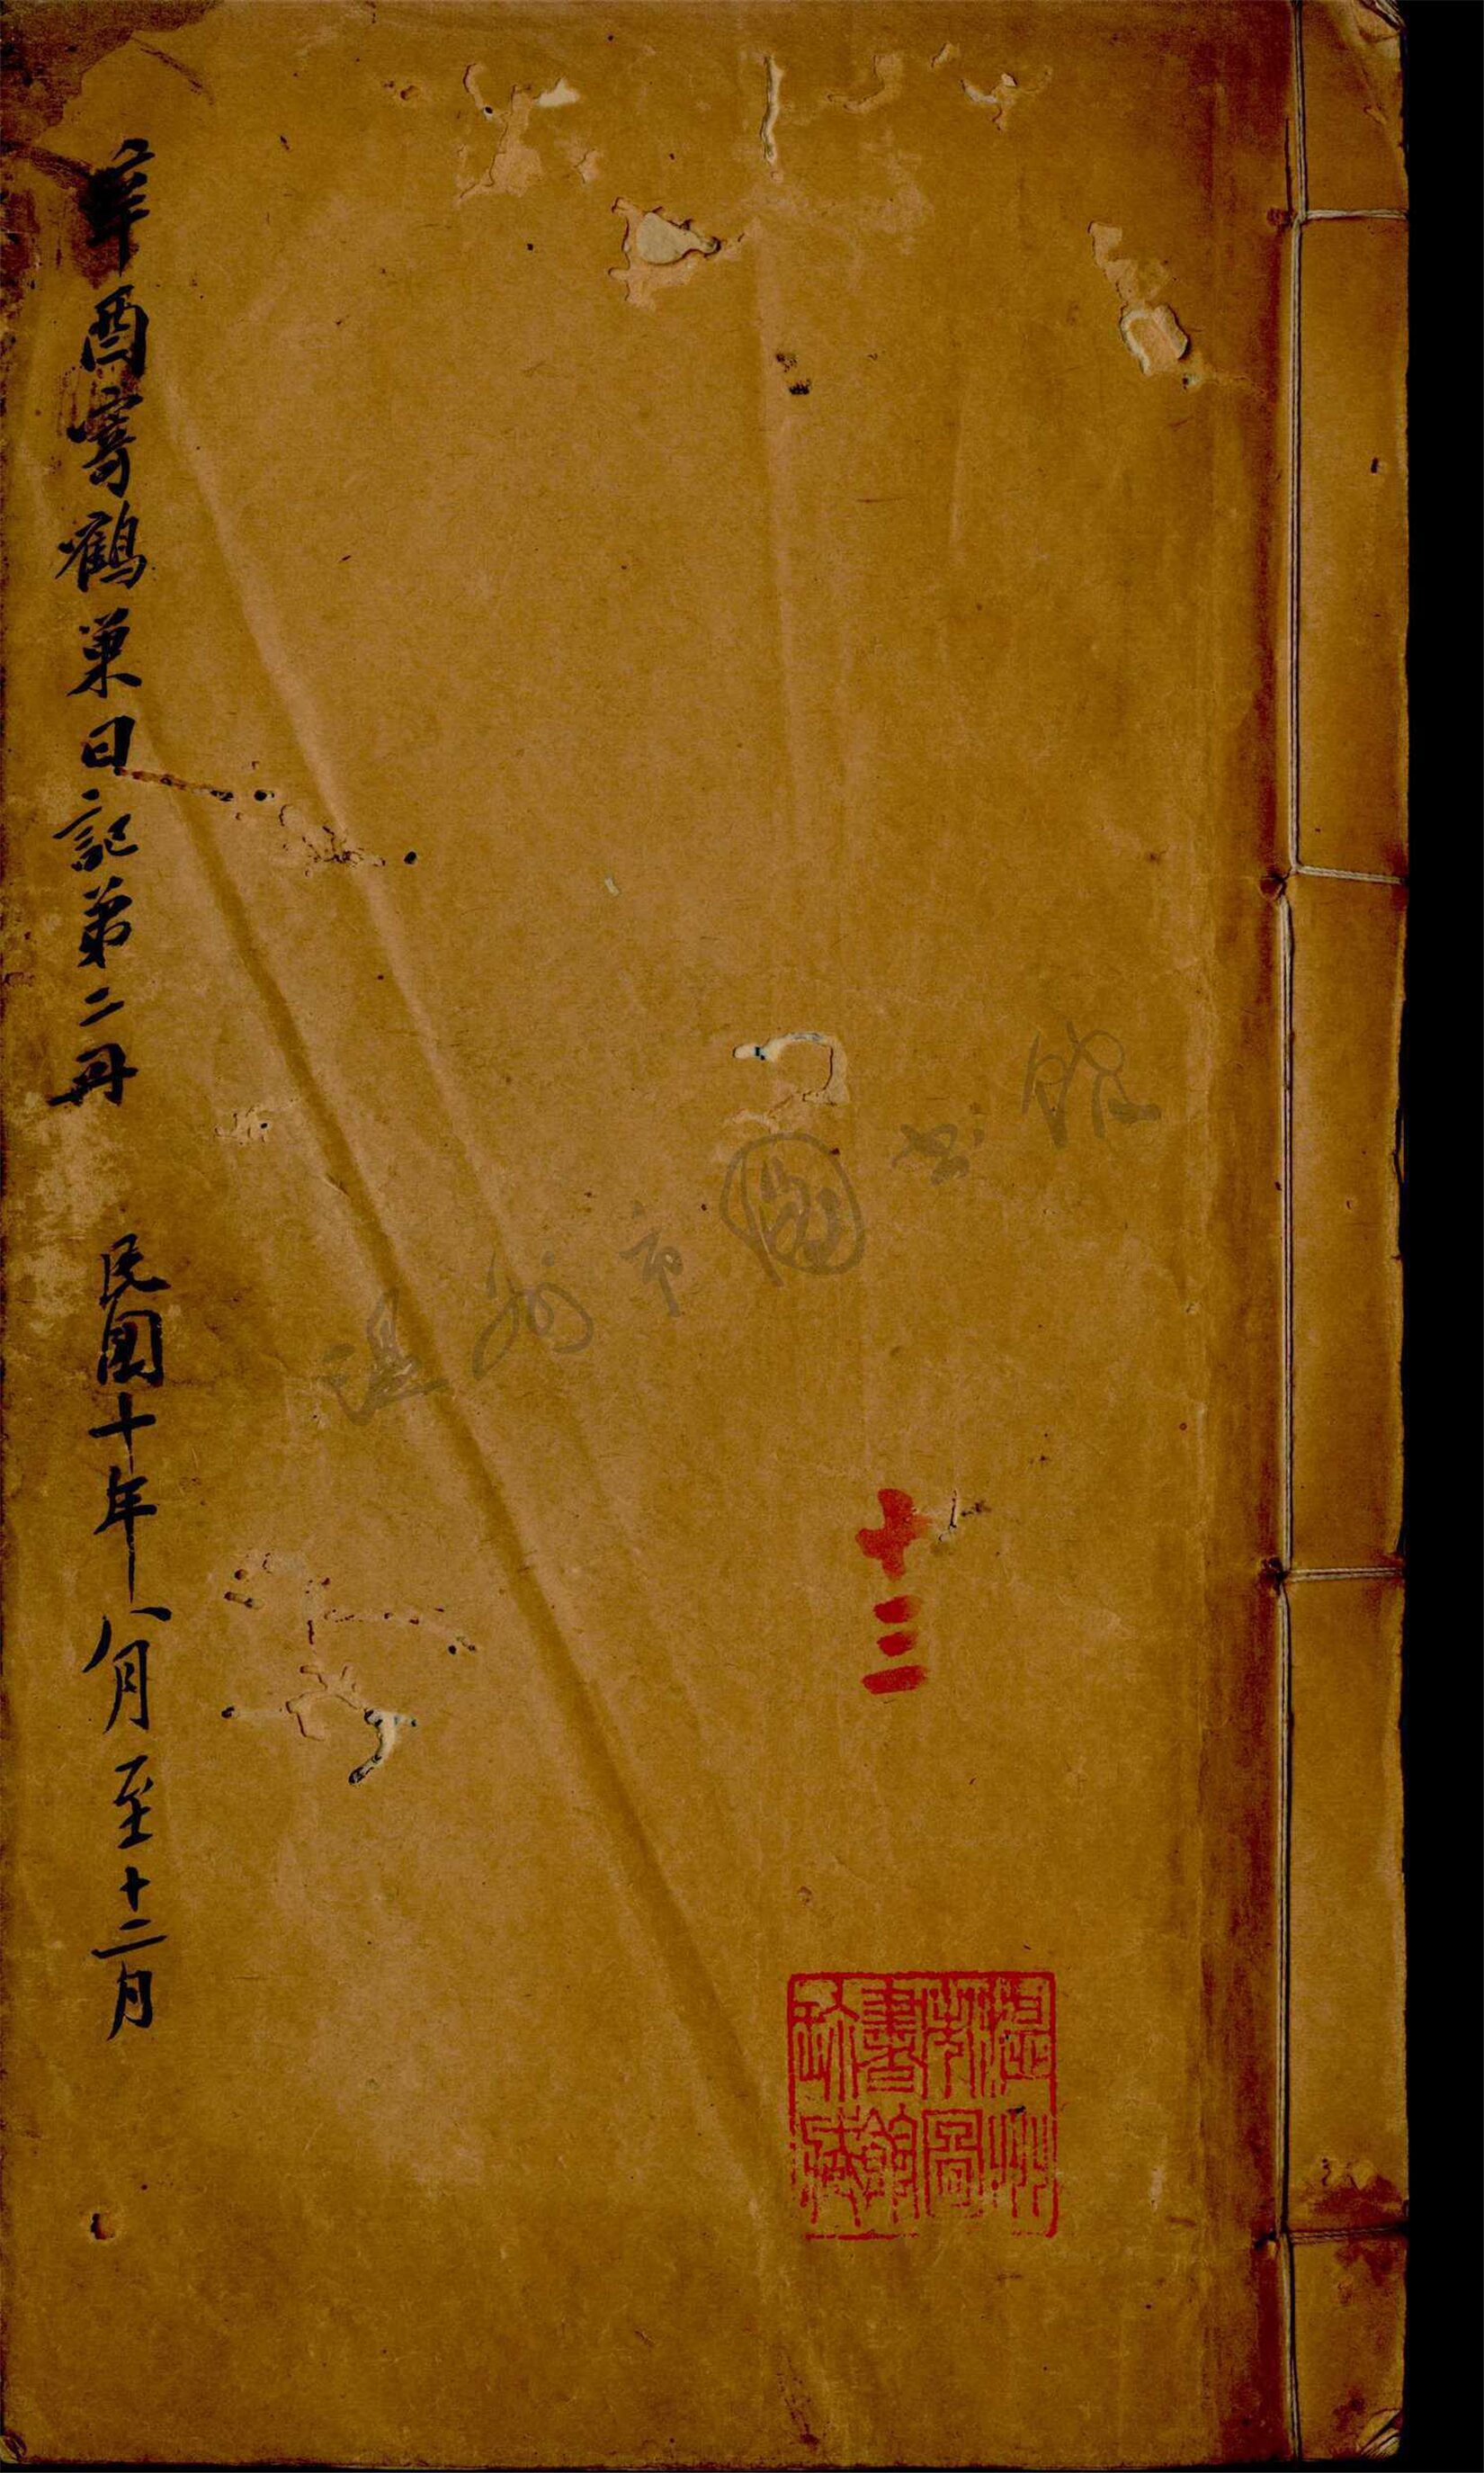 辛酉寄鶴巢日記第二冊 民國十年八月至十二月
十三
温州市圖书館
温州市圖書館所藏